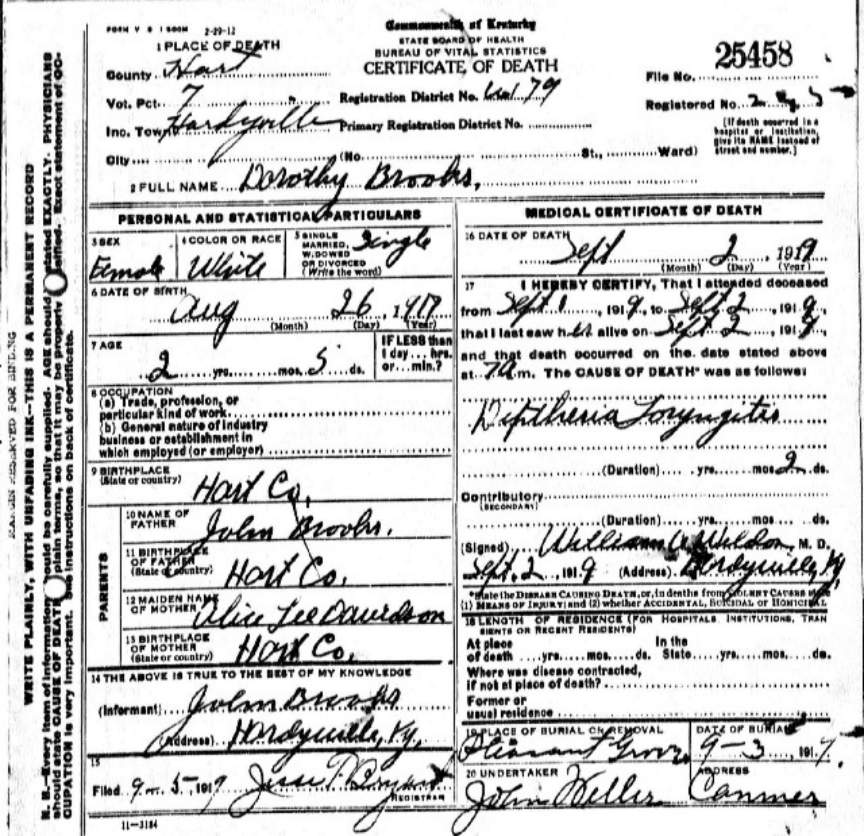 FORM V S 1 500M 2-29-12
Commonwealth of Kentucky
STATE BOARD OF HEALTH
BUREAU OF VITAL STATISTICS
CERTIFICATE OF DEATH
25458
File No.
Registered No.
[If death occurred in a hospital or institution, give its NAME instead of street and number.]
1 PLACE OF DEATH
County Hart
Vot. Pct. 7 Registration District No. 79
Inc. Town Hardyville Primary Registration District No.
City (No. St., Ward)
2 FULL NAME Dorothy Brooks,
PERSONAL AND STATISTICAL PARTICULARS
3 SEX Female
4 COLOR OR RACE White
5 SINGLE MARRIED, WIDOWED OR DIVORCED (Write the word) Single
6 DATE OF BIRTH Aug 26, 1917
(Month) (Day) (Year)
7 AGE 2 yrs. mos. 5 ds.
IF LESS than 1 day... hrs. or... min.?
8 OCCUPATION
(a) Trade, profession, or
particular kind of work
(b) General nature of industry
business or establishment in
which employed (or employer)
9 BIRTHPLACE
(State or country) Hart Co.
PARENTS
10 NAME OF FATHER John Brooks.
11 BIRTHPLACE OF FATHER (State or country) Hart Co.
12 MAIDEN NAME OF MOTHER Alice Lee Davidson
13 BIRTHPLACE OF MOTHER (State or country) Hart Co.
14 THE ABOVE IS TRUE TO THE BEST OF MY KNOWLEDGE
(Informant) John Brooks
(Address) Hardyville, Ky,
15
Filed 9-5-1919 Jesse T. Bryant
REGISTRAR
11-3184
MEDICAL CERTIFICATE OF DEATH
16 DATE OF DEATH Sept 2, 1919
(Month) (Day) (Year)
17 I HEREBY CERTIFY, That I attended deceased
from Sept 1, 1919, to Sept 2, 1919,
that I last saw her alive on Sept 2, 1919,
and that death occurred on the date stated above
at 7 a m. The CAUSE OF DEATH* was as follows:
Diptheria Loryngites
(Duration) yrs. mos. 2 ds.
Contributory
(SECONDARY)
(Duration) yrs. mos. ds.
(Signed) William A. Weldon, M. D.
Sept. 2, 1919 (Address) Hardyville, Ky
*State the DISEASE CAUSING DEATH, or, in deaths from VIOLENT CAUSES state
(1) MEANS OF INJURY; and (2) whether ACCIDENTAL, SUICIDAL or HOMICIDAL
18 LENGTH OF RESIDENCE (FOR HOSPITALS, INSTITUTIONS, TRAN
SIENTS OR RECENT RESIDENTS)
At place In the
of death yrs. mos. ds. State yrs. mos. ds.
Where was disease contracted,
if not at place of death?
Former or
usual residence
19 PLACE OF BURIAL OR REMOVAL DATE OF BURIAL
Pleasant Grove 9-3, 1919
20 UNDERTAKER ADDRESS
John Weller Canmer
MARGIN RESERVED FOR BINDING
WRITE PLAINLY, WITH UNFADING INK—THIS IS A PERMANENT RECORD
N. B.—Every item of information should be carefully supplied. AGE should be stated EXACTLY. PHYSICIANS
should state CAUSE OF DEATH in plain terms, so that it may be properly classified. Exact statement of OC-
CUPATION is very important. See instructions on back of certificate.